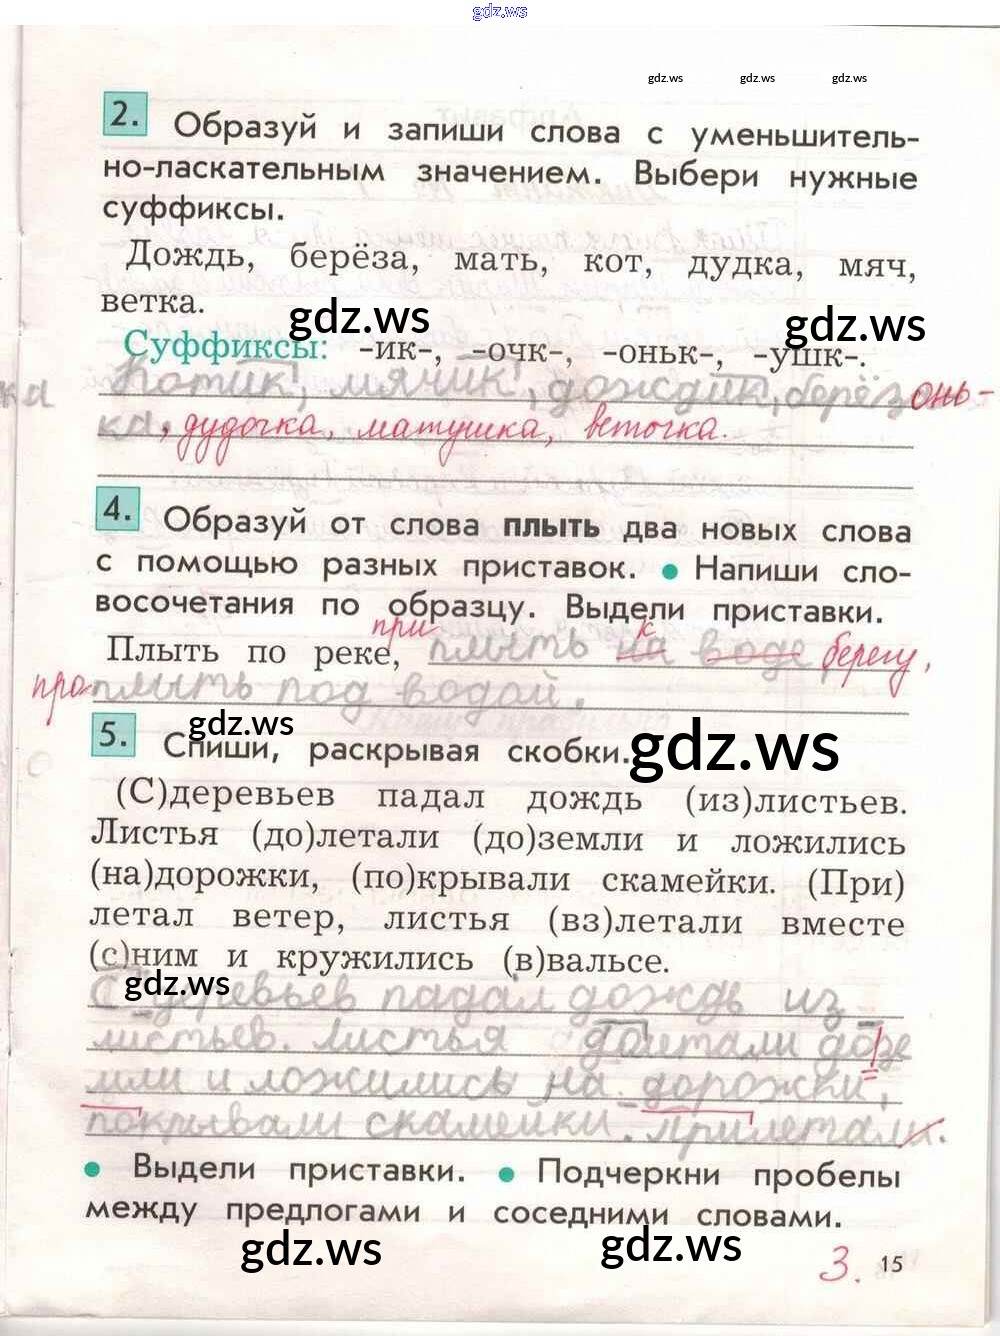 gdz.ws
gdz.ws gdz.ws gdz.ws
2. Образуй и запиши слова с уменьшитель-
но-ласкательным значением. Выбери нужные
суффиксы.
Дождь, берёза, мать, кот, дудка, мяч,
ветка.
gdz.ws gdz.ws
Суффиксы: -ик-, -очк-, -оньк-, -ушк-.
Котик, мячик, дождик, берёз онь-
ка, дудочка, матушка, веточка.
4. Образуй от слова плыть два новых слова
с помощью разных приставок. • Напиши сло-
восочетания по образцу. Выдели приставки.
при к
Плыть по реке, плыть на воде берегу,
проплыть под водой.
gdz.ws gdz.ws
5. Спиши, раскрывая скобки.
(С)деревьев падал дождь (из)листьев.
Листья (до)летали (до)земли и ложились
(на)дорожки, (по)крывали скамейки. (При)
летал ветер, листья (вз)летали вместе
(с)ним и кружились (в)вальсе.
gdz.ws
С деревьев падал дождь из
листьев. Листья долетали дозе
мли и ложились на дорожки,
покрывали скамейки. Прилетали.
• Выдели приставки. • Подчеркни пробелы
между предлогами и соседними словами.
gdz.ws gdz.ws
3. 15